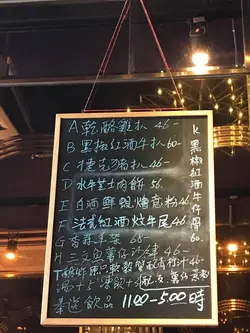 A 乾酪雞扒 46-
B 黑椒紅酒牛扒 60-
C 捷克豬扒 46-
D 水牛芝士肉餅 56
E 白酒鮮蜆燴意粉 46-
F 法式紅酒炆牛尾 46-
G 香蒜羊 66-
H 三文魚薯仔沙律 46-
茶送飲品 1100-500時
K 黑椒紅酒牛仔骨 60-